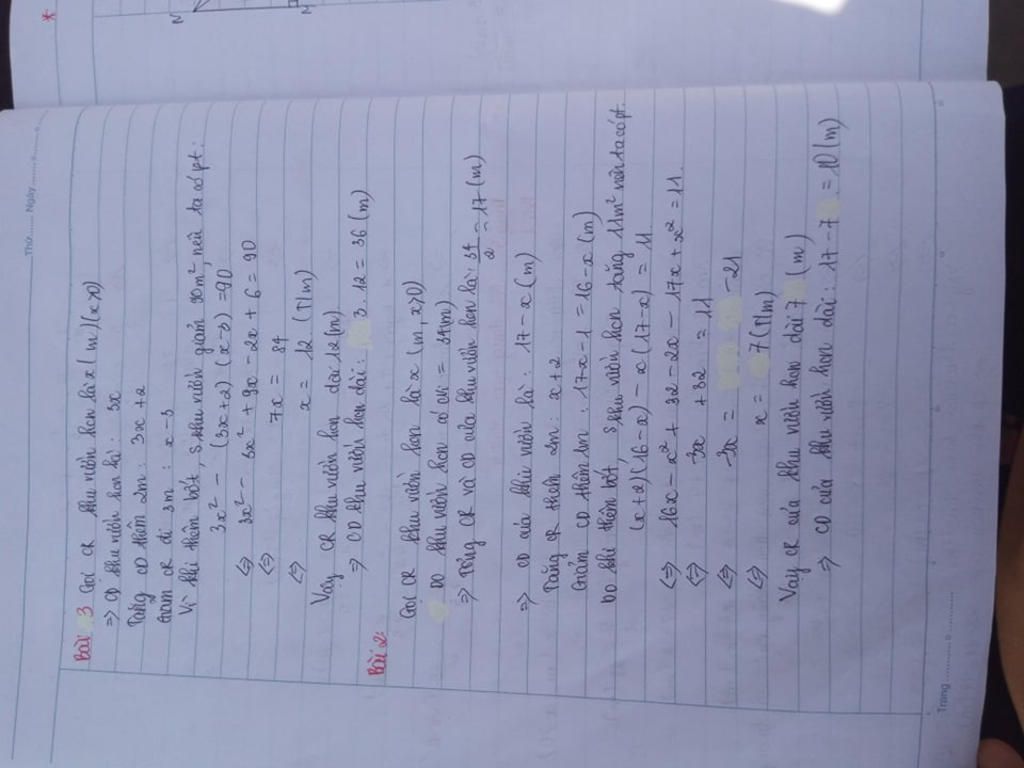 Thứ....... Ngày.......
Bài 3 Gọi CR khu vườn hcn là x (m) (x>0)
=> CD khu vườn hcn là: 3x
Tăng CD thêm 2m: 3x+2
Giảm CR đi 3m: x-3
Vì khi thêm bớt, S khu vườn giảm 90m², nên ta có pt:
3x² - (3x+2)(x-3) = 90
<=> 3x² - 3x² + 9x - 2x + 6 = 90
<=> 7x = 84
<=> x = 12 (TMm)
Vậy CR khu vườn hcn dài 12 (m)
=> CD khu vườn hcn dài: 3.12 = 36 (m)
Bài 2:
Gọi CR khu vườn hcn là x (m, x>0)
Do khu vườn hcn có chi = 34(m)
=> Tổng CR và CD của khu vườn hcn là: 34/2 = 17 (m)
=> CD của khu vườn là: 17-x (m)
Tăng CR thêm 2m: x+2
Giảm CD thêm 1m: 17-x-1 = 16-x (m)
Do khi thêm bớt, S khu vườn hcn tăng 11m² nên ta có pt:
(x+2)(16-x) - x(17-x) = 11
<=> 16x - x² + 32 - 2x - 17x + x² = 11
<=> -3x + 32 = 11
<=> -3x = -21
<=> x = 7 (TMm)
Vậy CR của khu vườn hcn dài 7 (m)
=> CD của khu vườn hcn dài: 17-7 = 10 (m)
Trang ...................
N
M